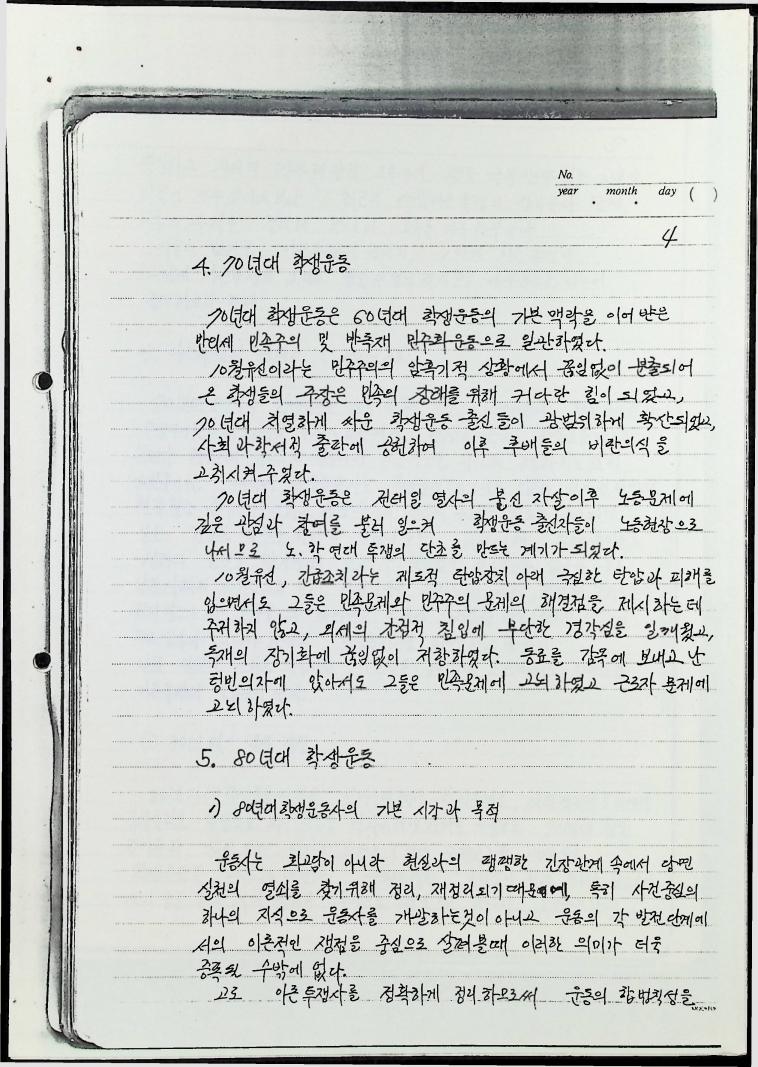 No.
year . month . day ( )
4
4. 70년대 학생운동
70년대 학생운동은 60년대 학생운동의 기본 맥락을 이어 받은
반외세 민족주의 및 반독재 민주화운동으로 일관하였다.
10월유신이라는 민주주의의 암흑기적 상황에서 끊임없이 분출되어
온 학생들의 주장은 민족의 장래를 위해 커다란 힘이 되었고,
70년대 치열하게 싸운 학생운동 출신들이 광범위하게 확산되었고,
사회과학서적 출판에 공헌하여 이후 후배들의 비판의식을
고취시켜 주었다.
70년대 학생운동은 전태일 열사의 분신 자살이후 노동문제에
깊은 관심과 참여를 불러 일으켜 학생운동 출신자들이 노동현장으로
나서므로 노.학 연대 투쟁의 단초를 만드는 계기가 되었다.
10월유신, 긴급조치라는 제도적 탄압장치 아래 극심한 탄압과 피해를
입으면서도 그들은 민족문제와 민주주의 문제의 해결점을 제시하는데
주저하지 않고, 외세의 간접적 침입에 부단한 경각심을 일깨웠고,
독재의 장기화에 끊임없이 저항하였다. 동료를 감옥에 보내고 난
텅빈의자에 앉아서도 그들은 민족문제에 고뇌하였고 근로자 문제에
고뇌하였다.
5. 80년대 학생운동
1) 80년대학생운동사의 기본 시각과 목적
운동사는 회고담이 아니라 현실과의 팽팽한 긴장관계 속에서 당면
실천의 열쇠를 찾기위해 정리, 재정리되기때문에, 특히 사건중심의
하나의 지식으로 운동사를 개발하는것이 아니고 운동의 각 발전단계에
서의 이론적인 쟁점을 중심으로 살펴볼때 이러한 의미가 더욱
증폭될 수밖에 없다.
고로 이론투쟁사를 정확하게 정리하므로써 운동의 합법칙성을